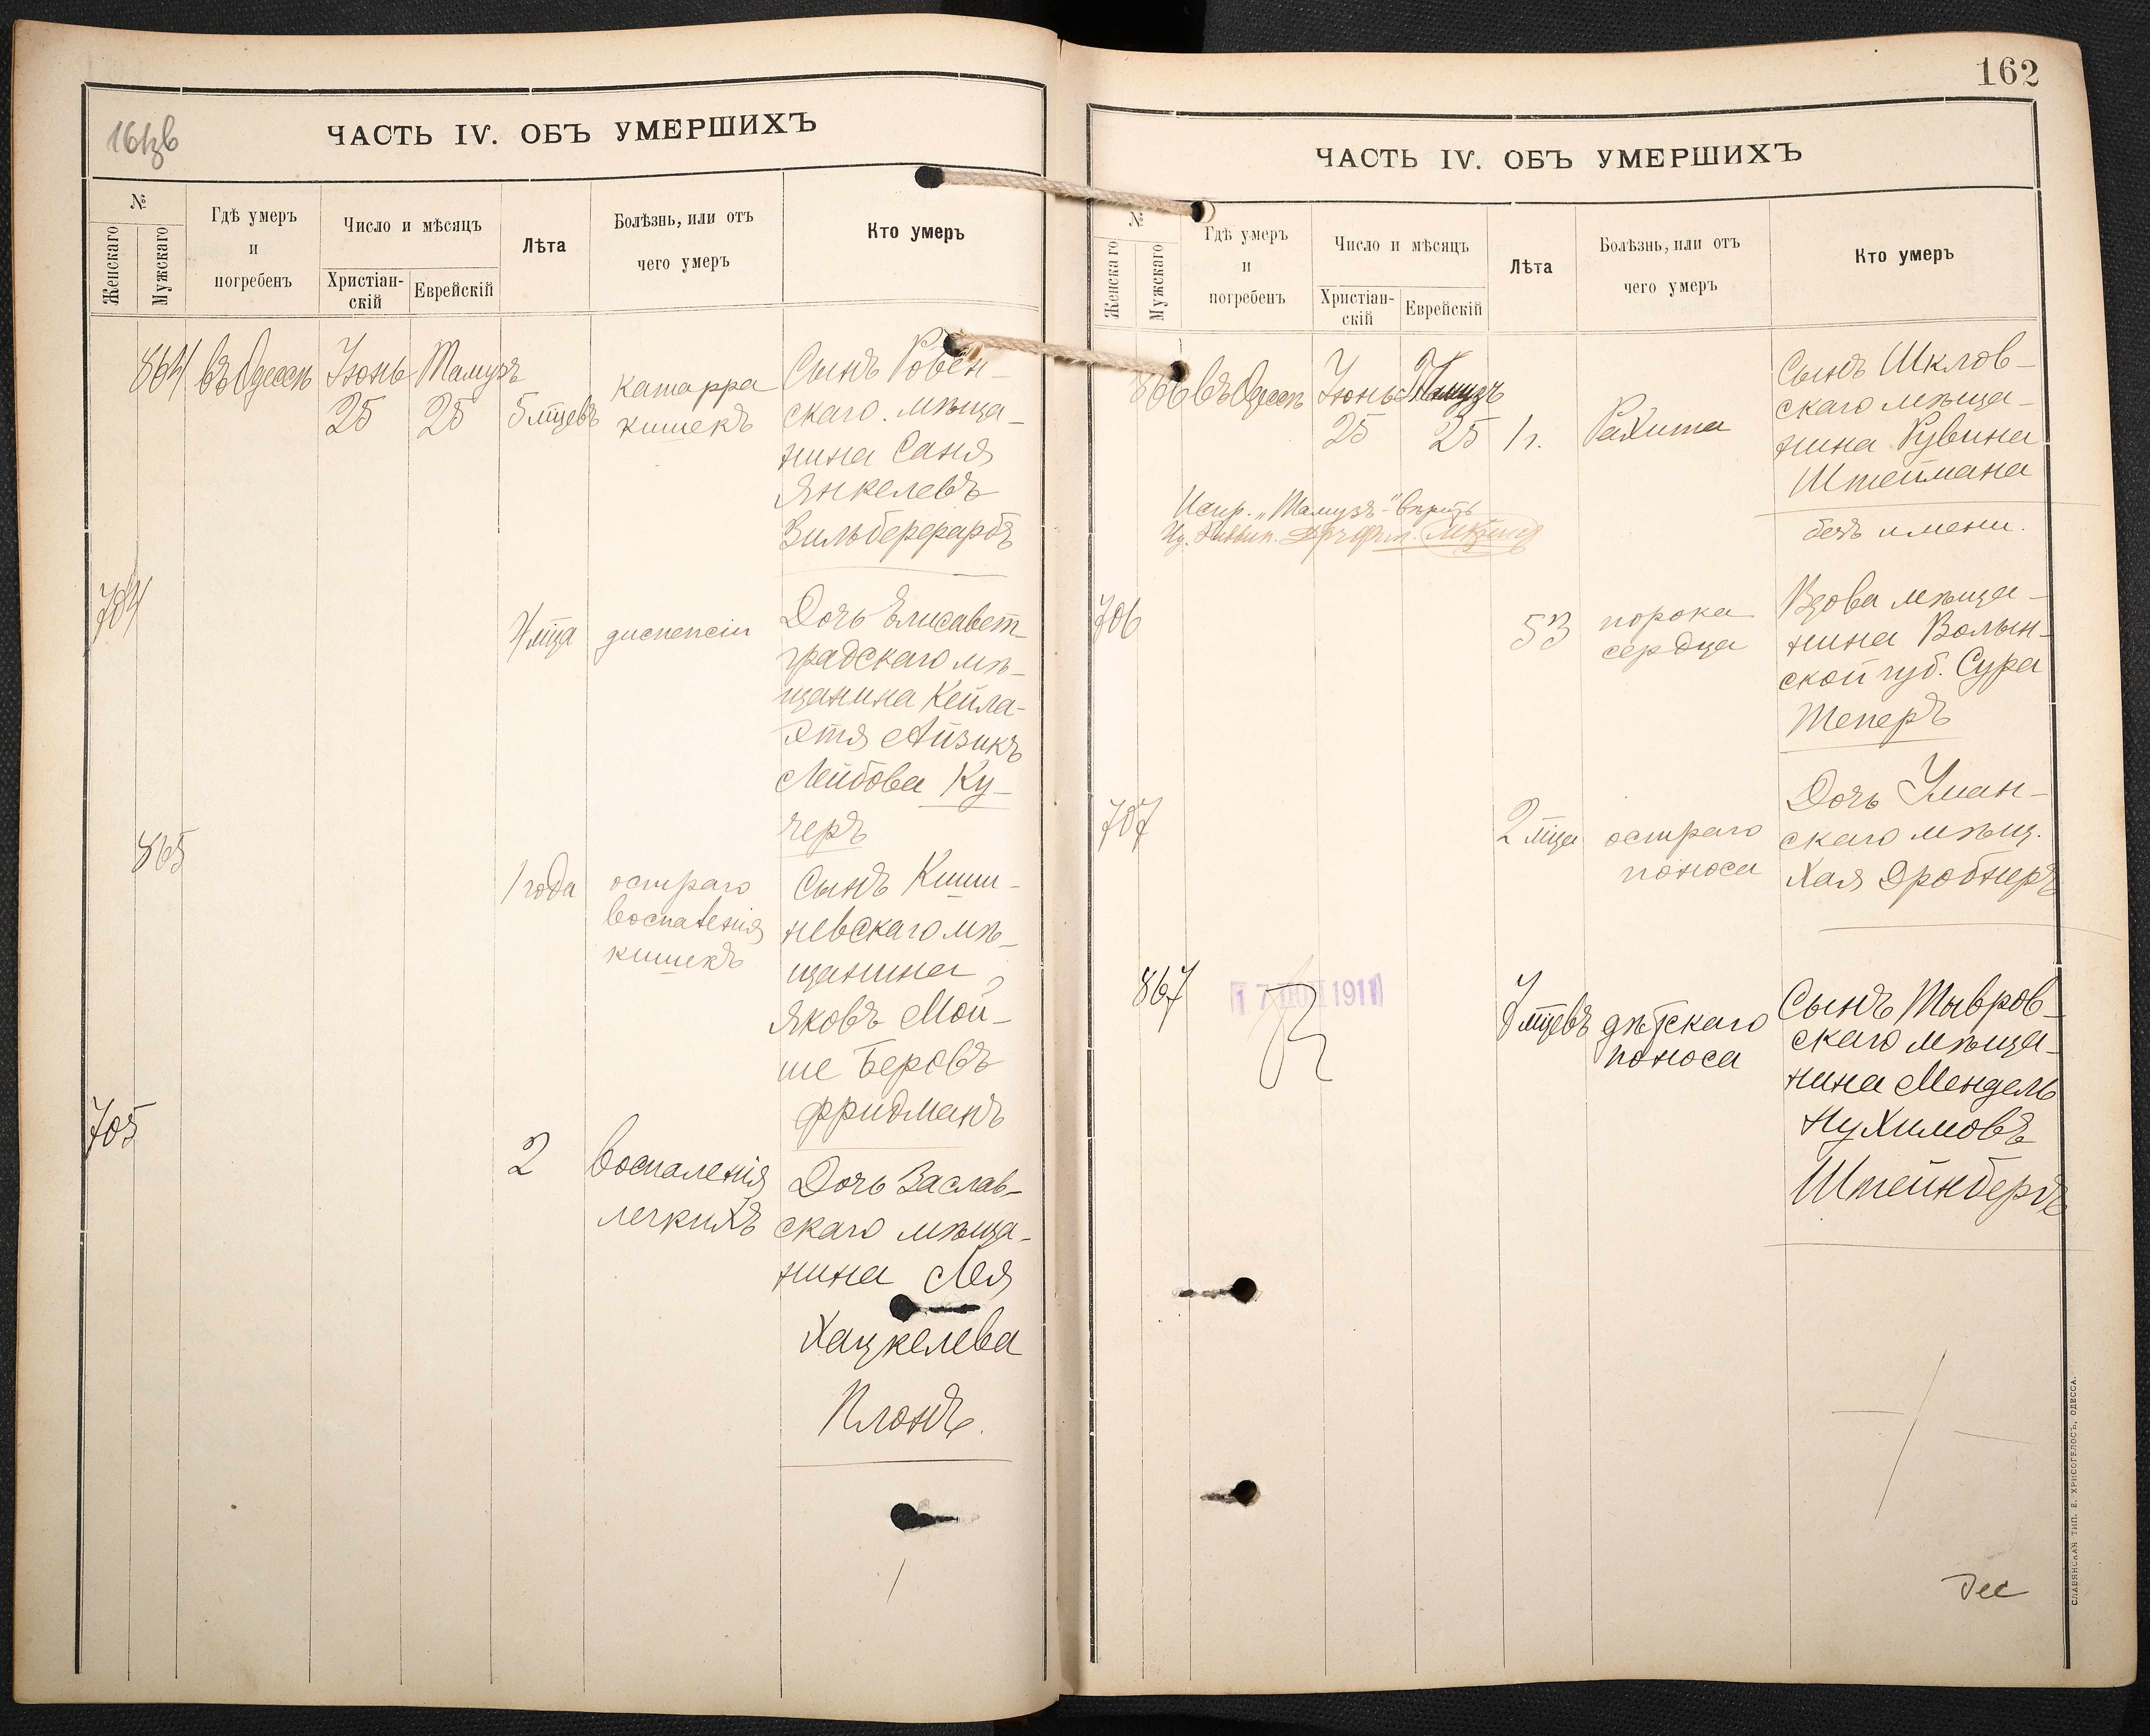 ЧАСТЬ IV. ОБЪ УМЕРШИХЪ
№
Женскаго
Мужскаго
Гдѣ умеръ
и
погребенъ
Число и мѣсяцъ
Христіан-
скій
Еврейскій
Лѣта
Болѣзнь, или отъ
чего умеръ
Кто умеръ
864 въ Одессѣ Іюнь Тамузъ
25 25 5 мцевъ
катарра
кишекъ
Сынъ Ровен-
скаго мѣща-
нина Саня
Янкелевъ
Зильберфарбъ
704
4 мца диспепсіи
Дочь Елисавет-
градскаго мѣ-
щанина Кейла-
Этя Айзикъ
Лейбова Ку-
черъ
865
1 года
остраго
воспаленія
кишекъ
Сынъ Киши-
невскаго мѣ-
щанина
Яковъ Мой-
ше Беровъ
Фридманъ
705
2
воспаленія
легкихъ
Дочь Заслав-
скаго мѣща-
нина Лея
Хацкелева
Плонъ.
162
ЧАСТЬ IV. ОБЪ УМЕРШИХЪ
№
Женскаго
Мужскаго
Гдѣ умеръ
и
погребенъ
Число и мѣсяцъ
Христіан-
скій
Еврейскій
Лѣта
Болѣзнь, или отъ
чего умеръ
Кто умеръ
866 въ Одессѣ Іюнь Тамузъ
25 25 1 г. Рахита
Сынъ Шклов-
скаго мѣща-
нина Рувина
Штеймана
безъ имени.
Испр. „Тамузъ"
706
53
порока
сердца
Вдова мѣща-
нина Волын-
ской губ. Сура
Теперъ
707
2 мца
остраго
поноса
Дочь Уман-
скаго мѣщ.
Хая Дробнеръ
867
17 1911
мцевъ
дѣтскаго
поноса
Сынъ Тывров-
скаго мѣща-
нина Мендель
Нухимовъ
Штейнбергъ
СЛАВЯНСКАЯ ТИП. Е. ХРИСОГЕЛОСЪ, ОДЕССА.